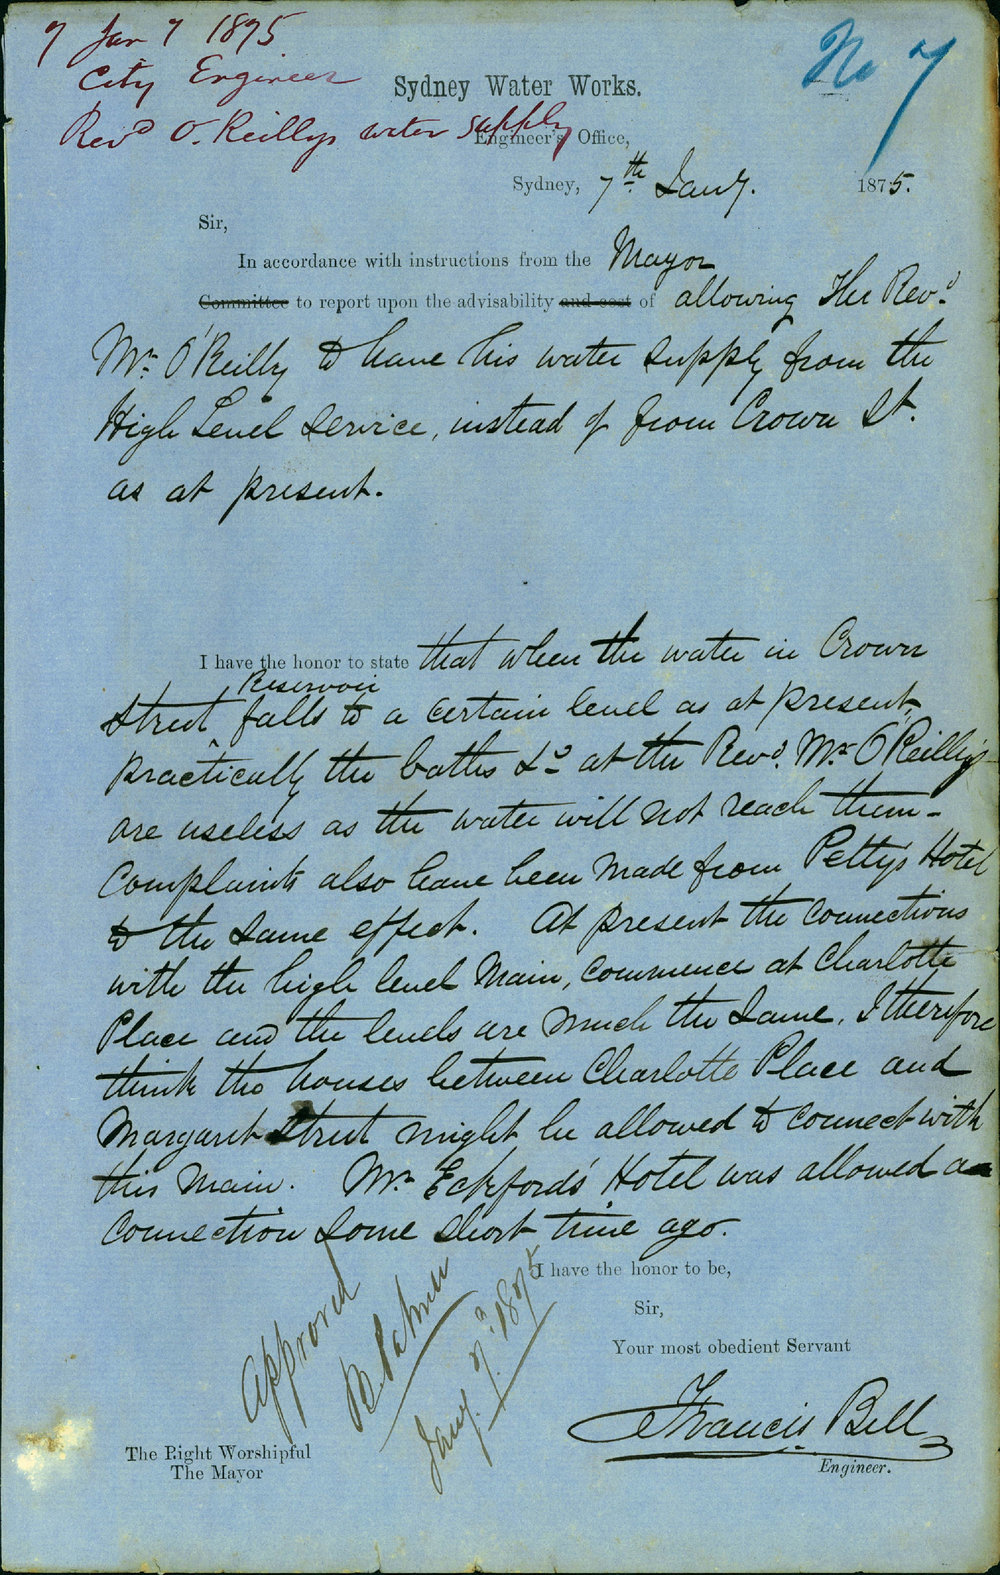 7 Jan 7 1875
City Engineer
Revd O.Reillys water supply
No 7
Sydney Water Works.
Engineer's Office,
Sydney, 7th Jany. 1875.
Sir,
In accordance with instructions from the Mayor
Committee to report upon the advisability and cost of allowing The Revd.
Mr. O'Reilly to have his water supply from the
High Level Service, instead of from Crown St.
as at present.
I have the honor to state that when the water in Crown
Reservoir
Street ^ falls to a certain level as at present,
practically the baths &c at the Revd. Mr. O'Reilly's
are useless as the water will not reach them -
Complaints also have been made from Petty's Hotel
to the same effect. At present the connections
with the high level Main, commence at Charlotte
Place and the levels are much the same. I therefore
think the houses between Charlotte Place and
Margaret Street might be allowed to connect with
this Main. Mr. Eckford's Hotel was allowed a
connection some short time ago.
I have the honor to be,
Sir,
Your most obedient Servant
Francis Bell
Engineer.
Approved
B. Palmer
Jany. 7. 1875
The Right Worshipful
The Mayor